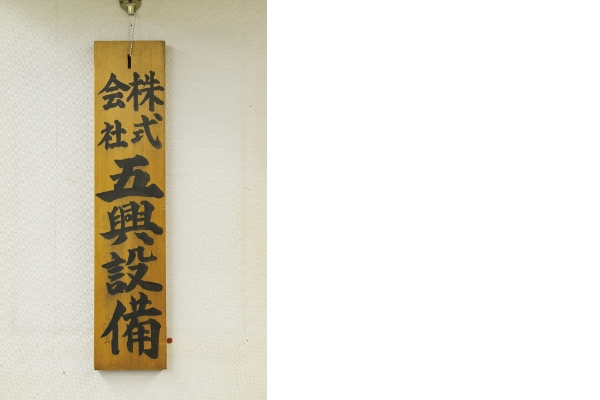 株式会社
五興設備